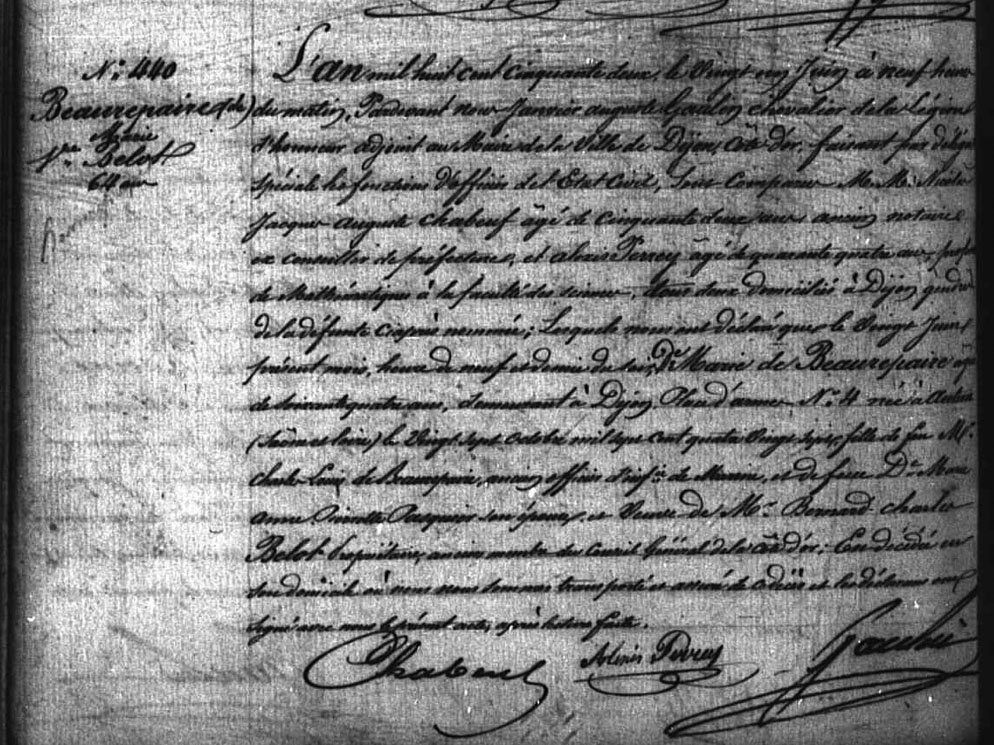 N° 440
Beaurepaire (de)
Marie
Vve Belot
64 ans
L'an mil huit cent cinquante deux, le vingt un Juin à neuf heures
du matin, Pardevant nous Jannier auguste Gaulin chevalier de la Légion
d'honneur adjoint au Maire de la Ville de Dijon, Côte d'or, faisant par délégon
spéciale les fonctions d'officier de l'Etat Civil, Sont Comparus M.M. Nicolas
Jacques auguste Chabeuf âgé de cinquante deux ans ancien notaire
ex conseiller de préfecture, et alexis Perrey âgé de quarante quatre ans, profr
de Mathématiques à la faculté des sciences, tous deux domiciliés à Dijon gendres
de la défunte ci après nommée; Lesquels nous ont déclaré que le vingt Juin
présent mois, heure de neuf et demie du soir, De Marie de Beaurepaire âgée
de soixante quatre ans, demeurant à Dijon Place d'armes N° 4 née à
(Saône et loire) le vingt sept octobre mil sept cent quatre vingt sept, fille de feu Mr
Charles Louis de Beaurepaire, ancien officier d'infie de Marine, et de feue De Marie
anne son épouse, et Veuve de Mr Bernard Charles
Belot propriétaire, ancien membre du Conseil Général de la Côte d'or; Est décédée en
son domicile où nous nous sommes transporté et assuré de ce décès et les déclarans ont
signé avec nous le présent acte, après lecture faite.
Chabeuf
Alexis Perrey
Gaulin